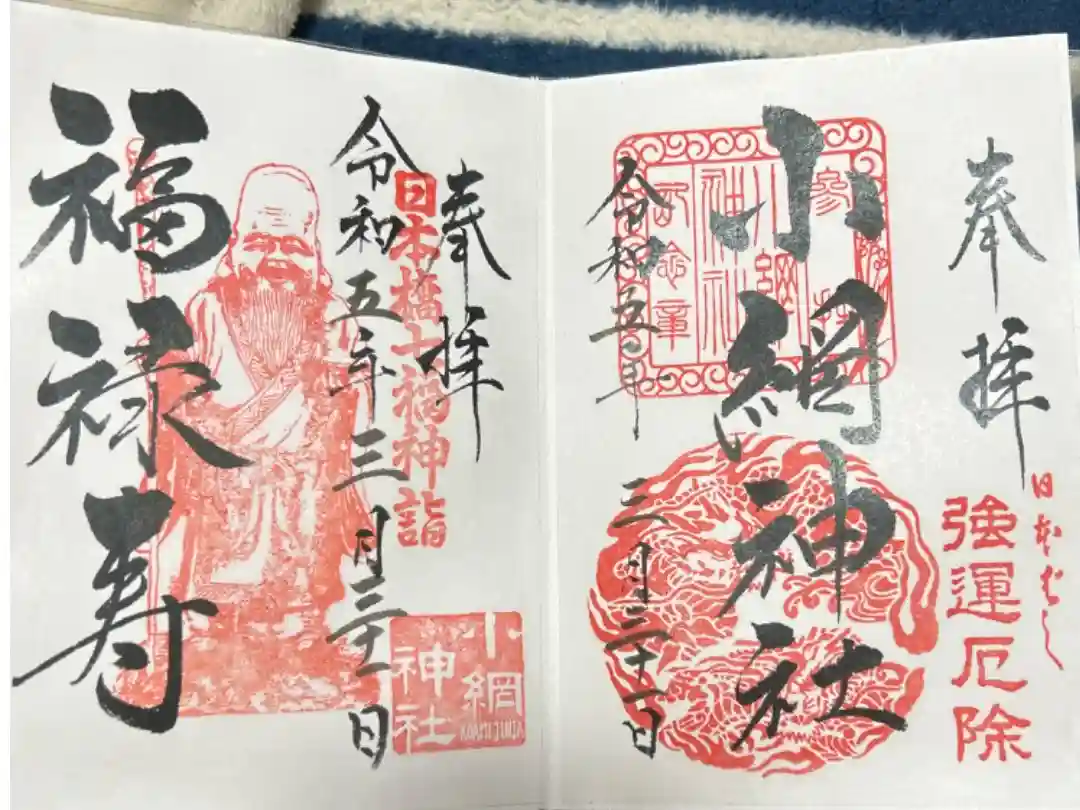 奉拝
日本ばし
強運厄除
小網神社
参拝
小網
神社
記念章
令和五年三月三十一日
奉拝
日本橋七福神詣
令和五年三月三十一日
福禄寿
小網
神社
KOAMI JINJA